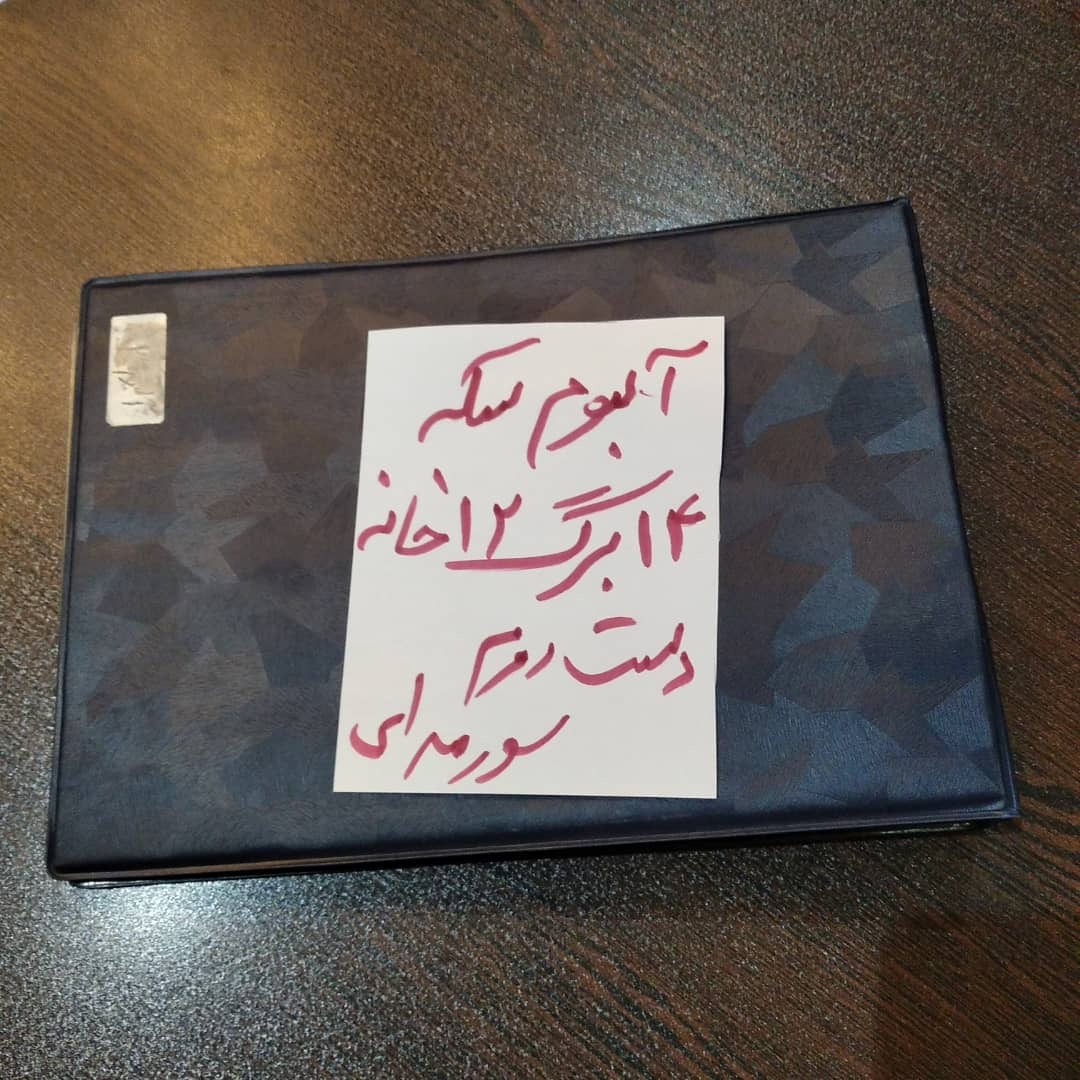 آلبوم سکه
۱۴ برگ ۱۲ خانه
دست دوم
سورمه ای